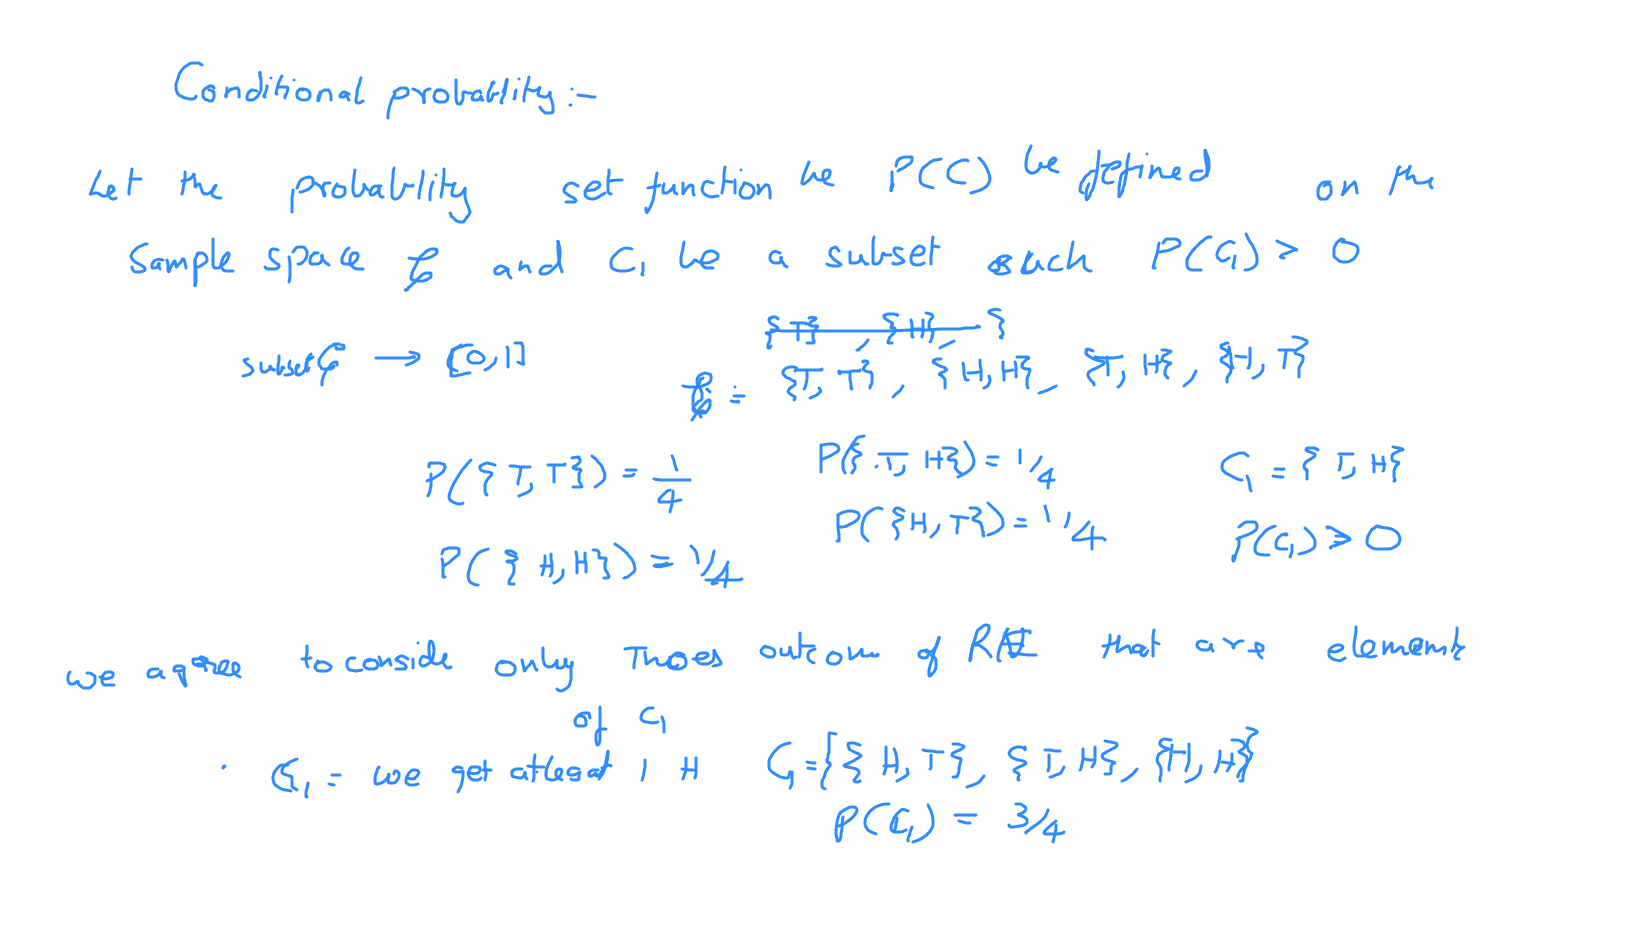 Conditional probablity :-
Let the probablity set function be P(C) be defined on the
Sample space 𝒞 and C₁ be a subset such P(C₁) > 0
{T}, {H}, }
subset 𝒞 → [0,1]
𝒞 = {T, T}, {H,H}, {T, H}, {H, T}
P({T,T}) = 1/4 P({T, H}) = 1/4 C₁ = {T,H}
P({H,H}) = 1/4 P({H, T}) = 1/4 P(C₁) > 0
we agree to conside only Thoes outcom of RAE that are elements
of C₁
. C₁ = we get atleast 1 H C₁ = {{H,T}, {T,H}, {H,H}}
P(C₁) = 3/4